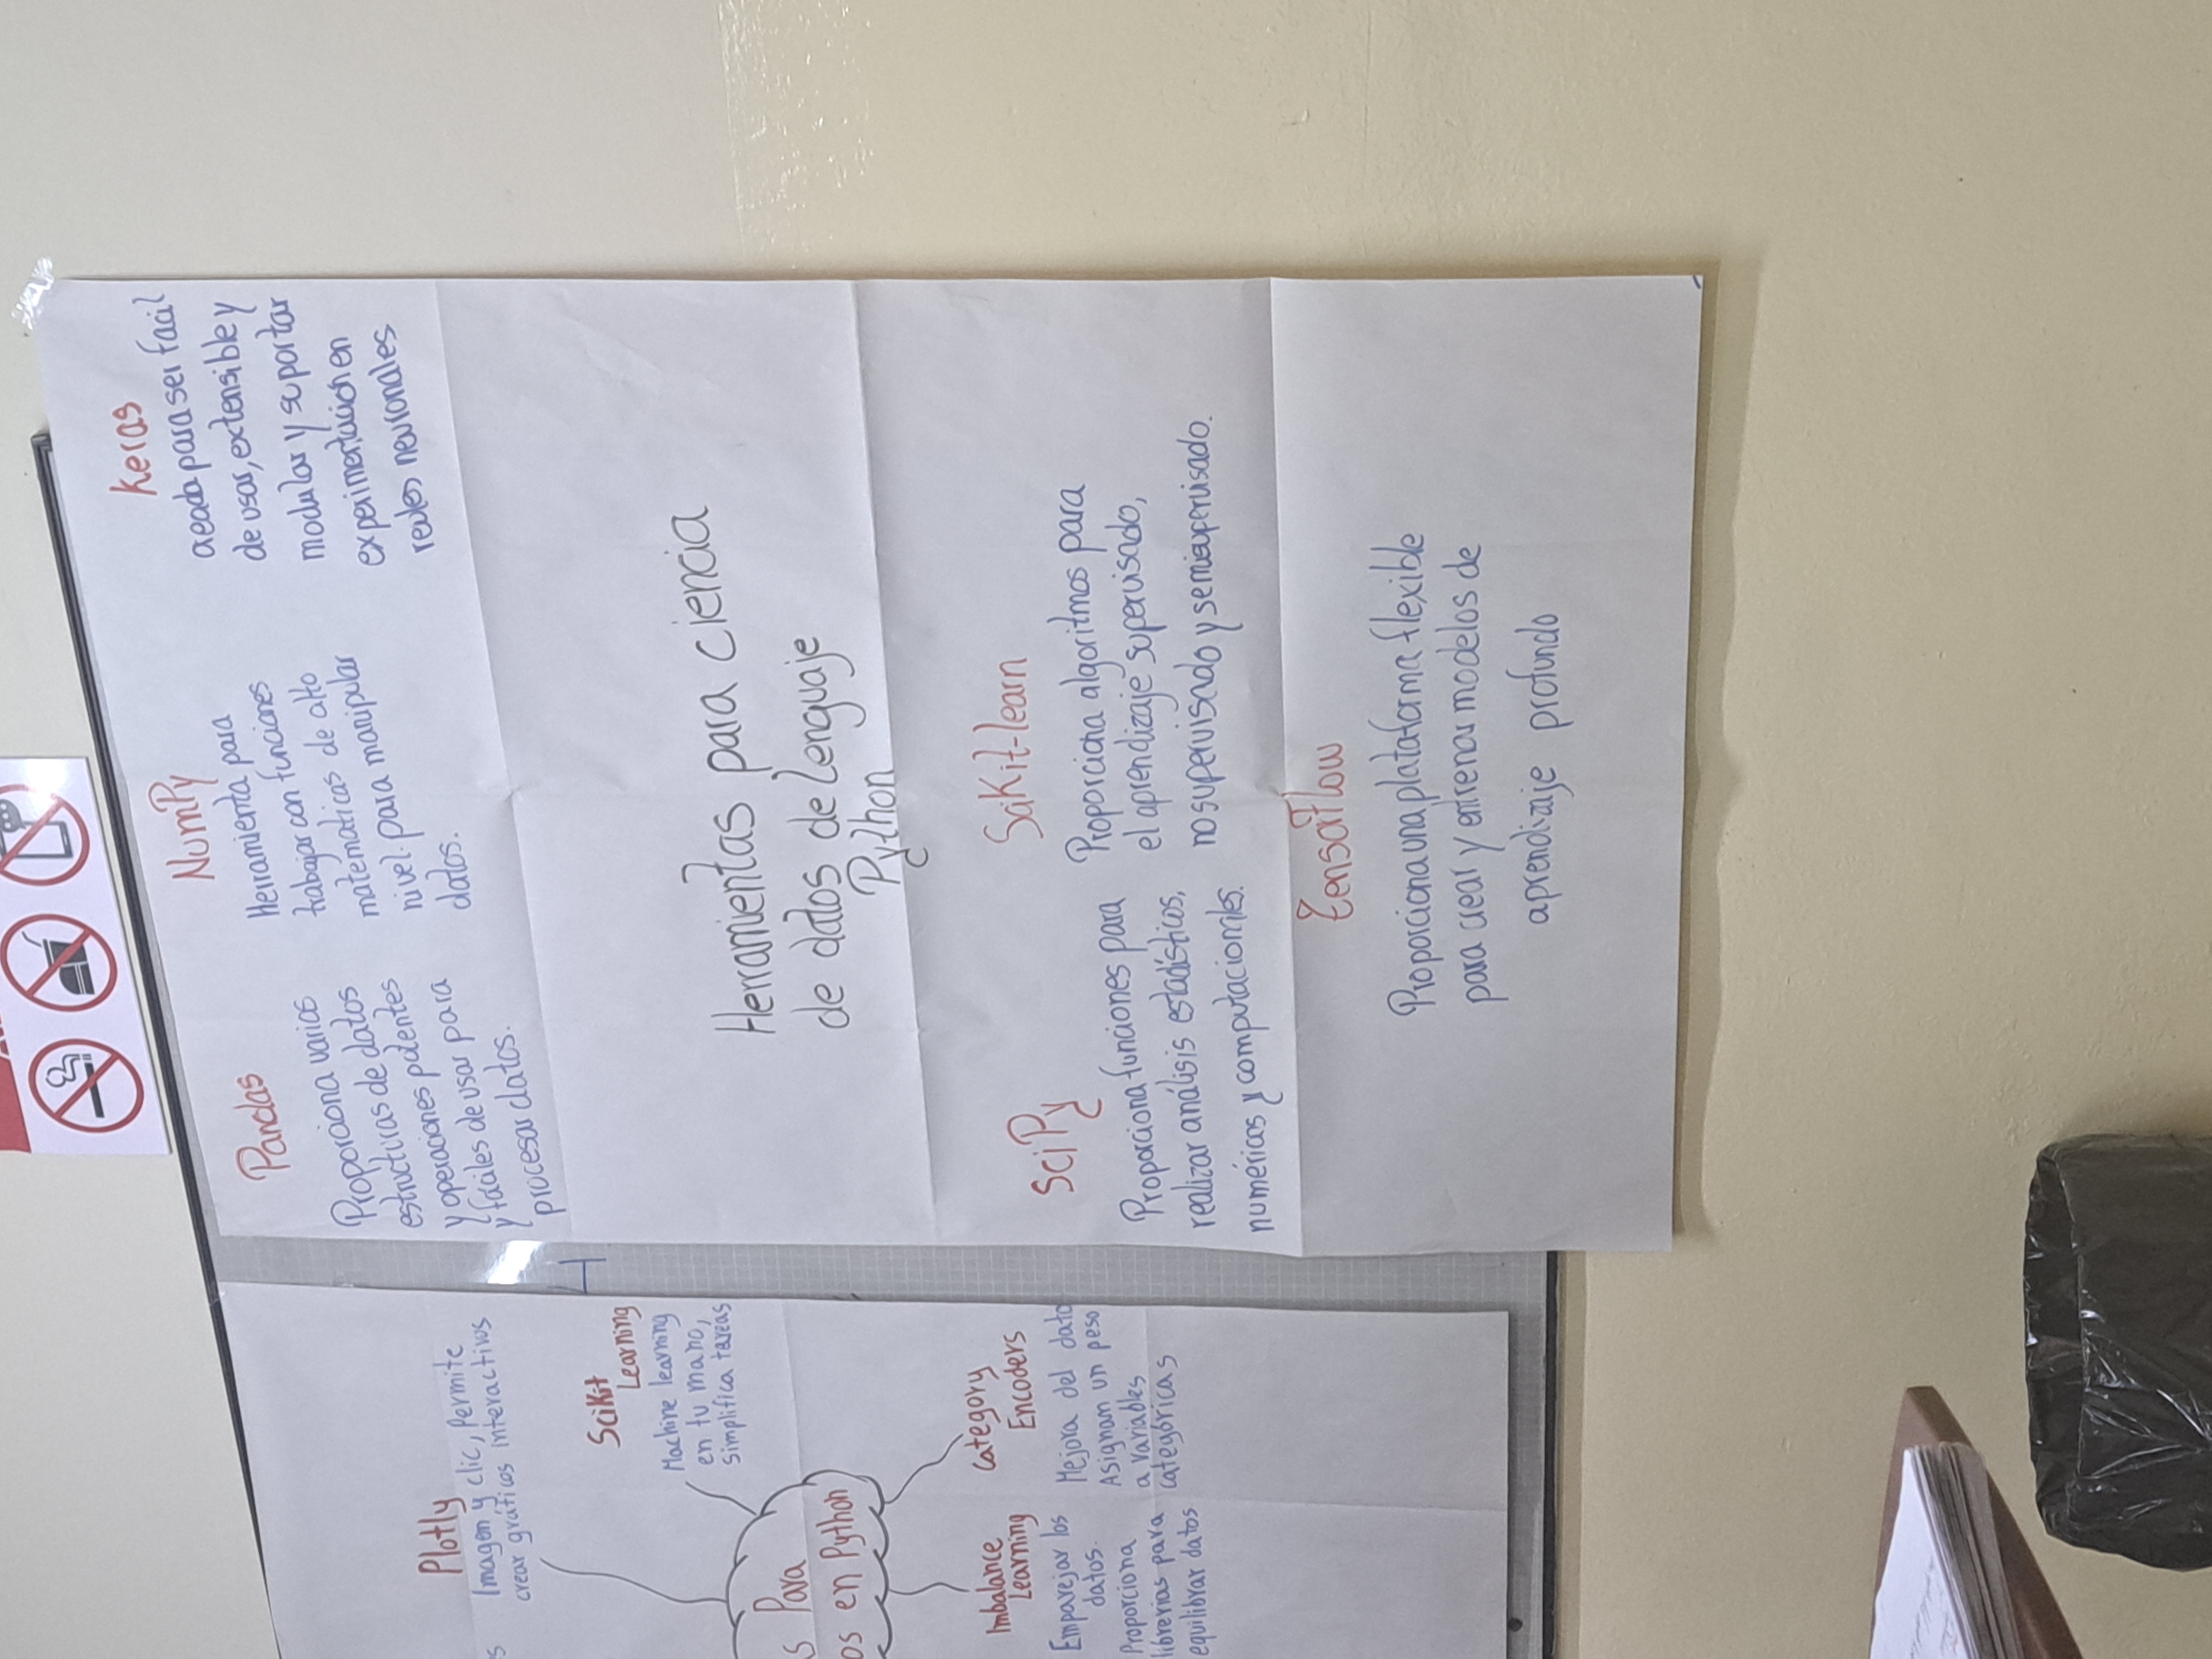 Plotly
s Imagen y clic, Permite
crear gráficos interactivos
Scikit
Learning
Machine learning
en tu mano,
simplifica tareas
s Para
os en Python
Imbalance
Learning
Emparejar los
datos.
Proporciona
librerias para
equilibrar datos
Category
Encoders
Mejora del dato
Asignam un peso
a variables
categóricas
Pandas
Proporciona varias
estructuras de datos
y operaciones potentes
y fáciles de usar para
procesar datos.
NumPy
Herramienta para
trabajar con funciones
matematicas de alto
nivel para manipular
datos.
Keras
creada para ser facil
de usar, extensible y
modular y suportar
experimentacion en
redes neuronales
Herramientas para ciencia
de datos de lenguaje
Python
SciPy
Proporciona funciones para
realizar análisis estadísticos,
numéricos y computacionales.
SciKit-learn
Proporciona algoritmos para
el aprendizaje supervisado,
no supervisado y semisupervisado.
TensorFlow
Proporciona una plataforma flexible
para crear y entrenar modelos de
aprendizaje profundo